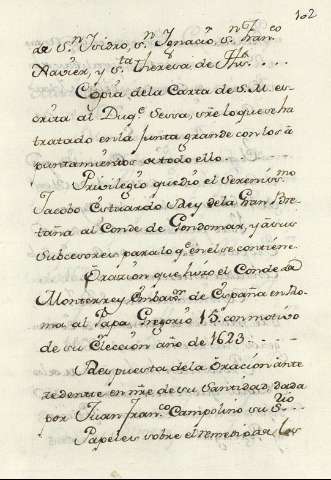 102
de Sn. Isidro, Sn. Ignacio, Sn. Franco.
Xavier, y Sta. Theresa de Jhs.
Copia dela Carta de S.M. es-
crita al Duqe. Sessa, sre lo que se ha
tratado en la Junta grande con los a
puntamientos de todo ello.
Privilegio que dió el Serenismo.
Jacobo Estuardo Rey dela Gran Bre-
taña al Conde de Gondomar, y á sus
subcesores para lo qe. en el se contiene.
Orazion que hizo el Conde de
Monterrey Embaxor. de España en Ro-
ma al Papa Gregorio 15º. con motivo
de su Eleccion año de 1623.
Respuesta dela Oracion ante
zedente en nre de su Santidad, dada
por Juan Franco. Campolino su Srio.
Papeles sobre el remedio de los